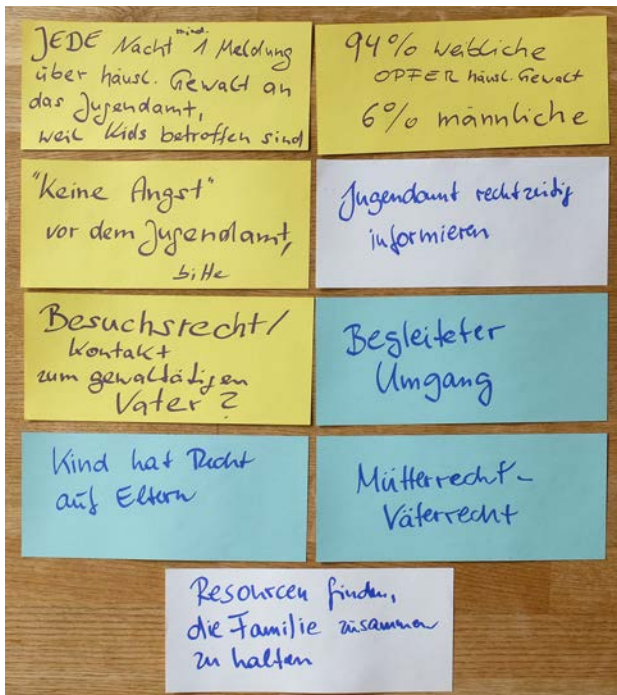 JEDE Nacht mind. 1 Meldung
über häusl. Gewalt an
das Jugendamt,
weil Kids betroffen sind
94% weibliche
OPFER häusl. Gewalt
6% männliche
"Keine Angst"
vor dem Jugendamt,
bitte
Jugendamt rechtzeitig
informieren
Besuchsrecht/
Kontakt
zum gewalttätigen
Vater?
Begleiteter
Umgang
Kind hat Recht
auf Eltern
Mütterrecht-
Väterrecht
Resourcen finden,
die Familie zusammen
zu halten